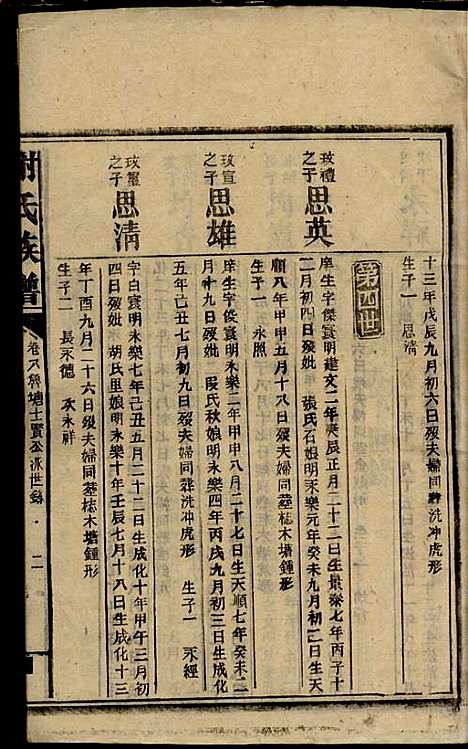 十三年戊辰九月初六日歿夫婦同葬洗冲虎形
生子一 思清
第四世
玫禮之子
思英
庠生字傑寰明建文二年庚辰正月二十二日生景泰七年丙子十
二月初四日歿妣 張氏石娘明永樂元年癸未九月初二日生天
順八年甲申五月十八日歿夫婦同葬梽木塘鍾形
生子一 永照
玫宣之子
思雄
庠生字俊寰明永樂二年甲申八月二十七日生天順七年癸未二
月十九日歿妣 段氏秋娘明永樂四年丙戌九月初三日生成化
五年己丑七月初九日歿夫婦同葬洗冲虎形 生子一 永經
玫璽之子
思清
字白寰明永樂七年己丑五月二十二日生成化十年甲午三月初
四日歿妣 胡氏里娘明永樂十年壬辰七月十八日生成化十三
年丁酉九月二十六日歿夫婦同葬梽木塘鍾形
生子二 長永德 次永祥
氏族譜
卷八 塘士賢公派世錄 二